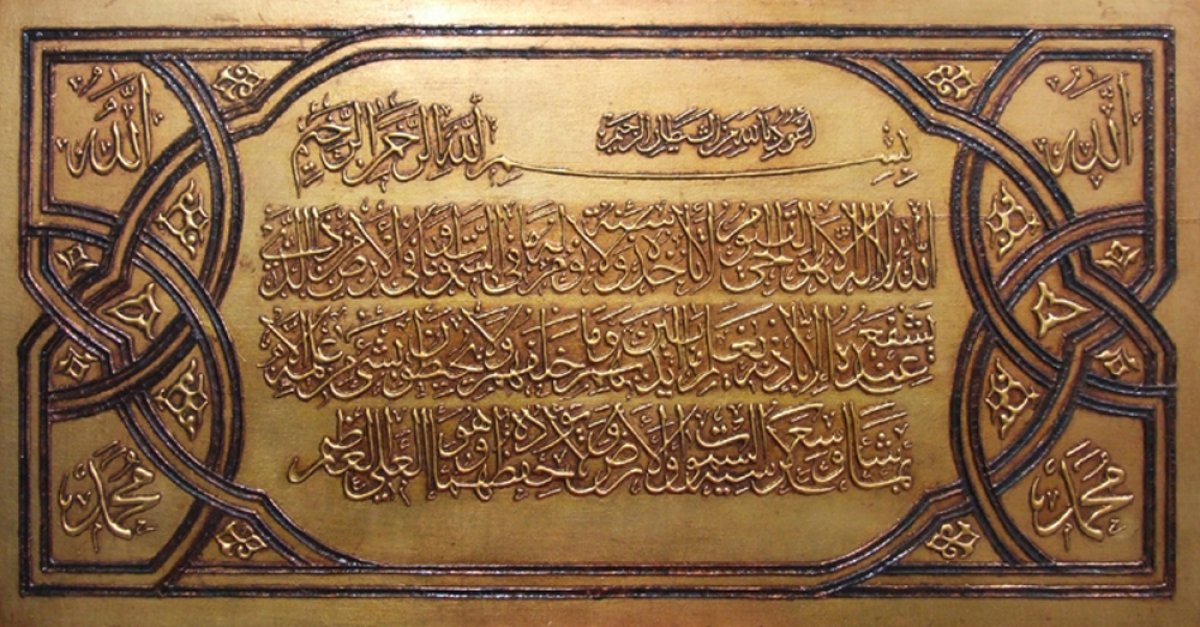 الله
الله
اعوذ بالله من الشيطان الرجيم
بسم الله الرحمن الرحيم
الله لا إله إلا هو الحي القيوم لا تأخذه سنة ولا نوم له ما في السموات وما في الأرض من ذا الذي
يشفع عنده إلا بإذنه يعلم ما بين أيديهم وما خلفهم ولا يحيطون بشئ من علمه إلا
بما شاء وسع كرسيه السموات والأرض ولا يؤده حفظهما وهو العلي العظيم
محمد
محمد